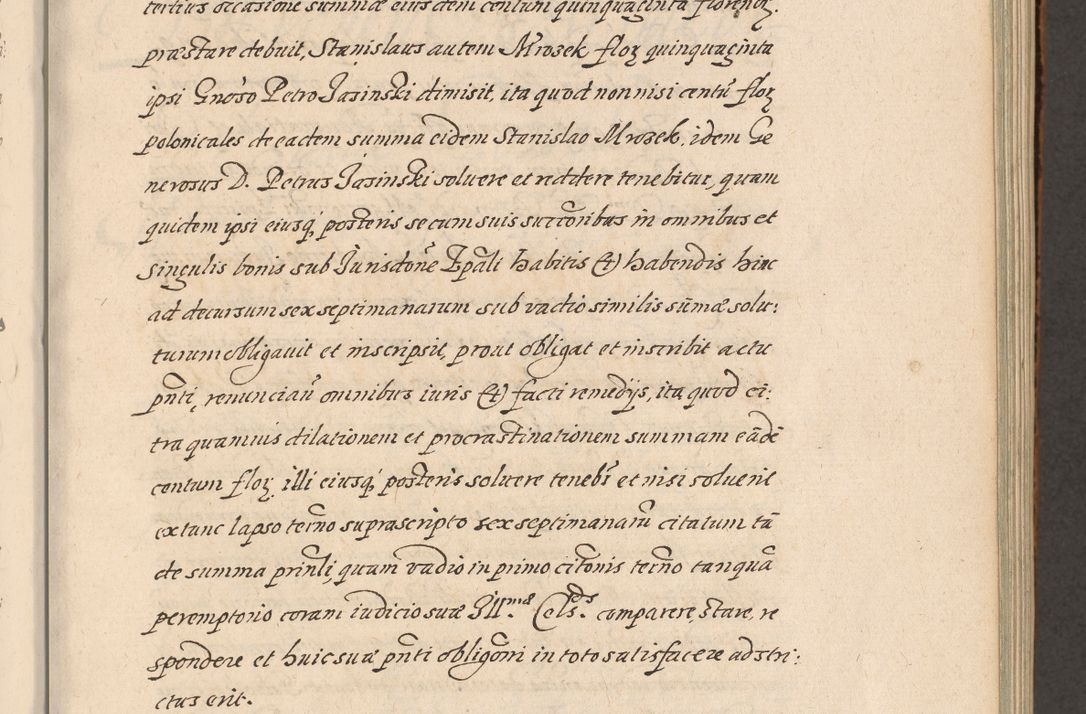 tertius occasione summæ eiusdem centum quinquaginta florenoꝝ
præstare debuit, Stanislaus autem Mrozek floꝝ quinquaginta
ipsi Gnõso Petro Jasinski dimisit, ita quod non nisi centũ floꝝ
polonicales de eadem summa eidem Stanislao Mrozek, idem Ge
nerosus D. Petrus Jasinski soluere et reddere tenebitur, quam
quidem ipsi eiusq́ posteris se cum suis succõribus in omnibus et
singulis bonis sub Jurisdõne Epãli habitis et habendis hinc
ad decursum sex septimanarum sub vadio similis sũmæ solu:
turum obligauit et inscripsit, prout obligat et inscribit actu
pñti, renunciañ omnibus iuris et facti remedijs, ita quod ci:
tra quamuis dilationem et procrastinationem summam eãdẽ
centum floꝝ illi eiusq́ posteris soluere tenebr̃ et nisi soluerit
ex tunc lapso terño suprascripto sex septimanarũ citatum tã
de summa prinl̃i, quam vadio in primo citõnis terño tanquã
peremptorio coram iudicio suæ Jll.mæ Cels.dis comparere, stare, re
spondere et huic suæ pñti obligõni in toto satisfacere adstri:
ctus erit.